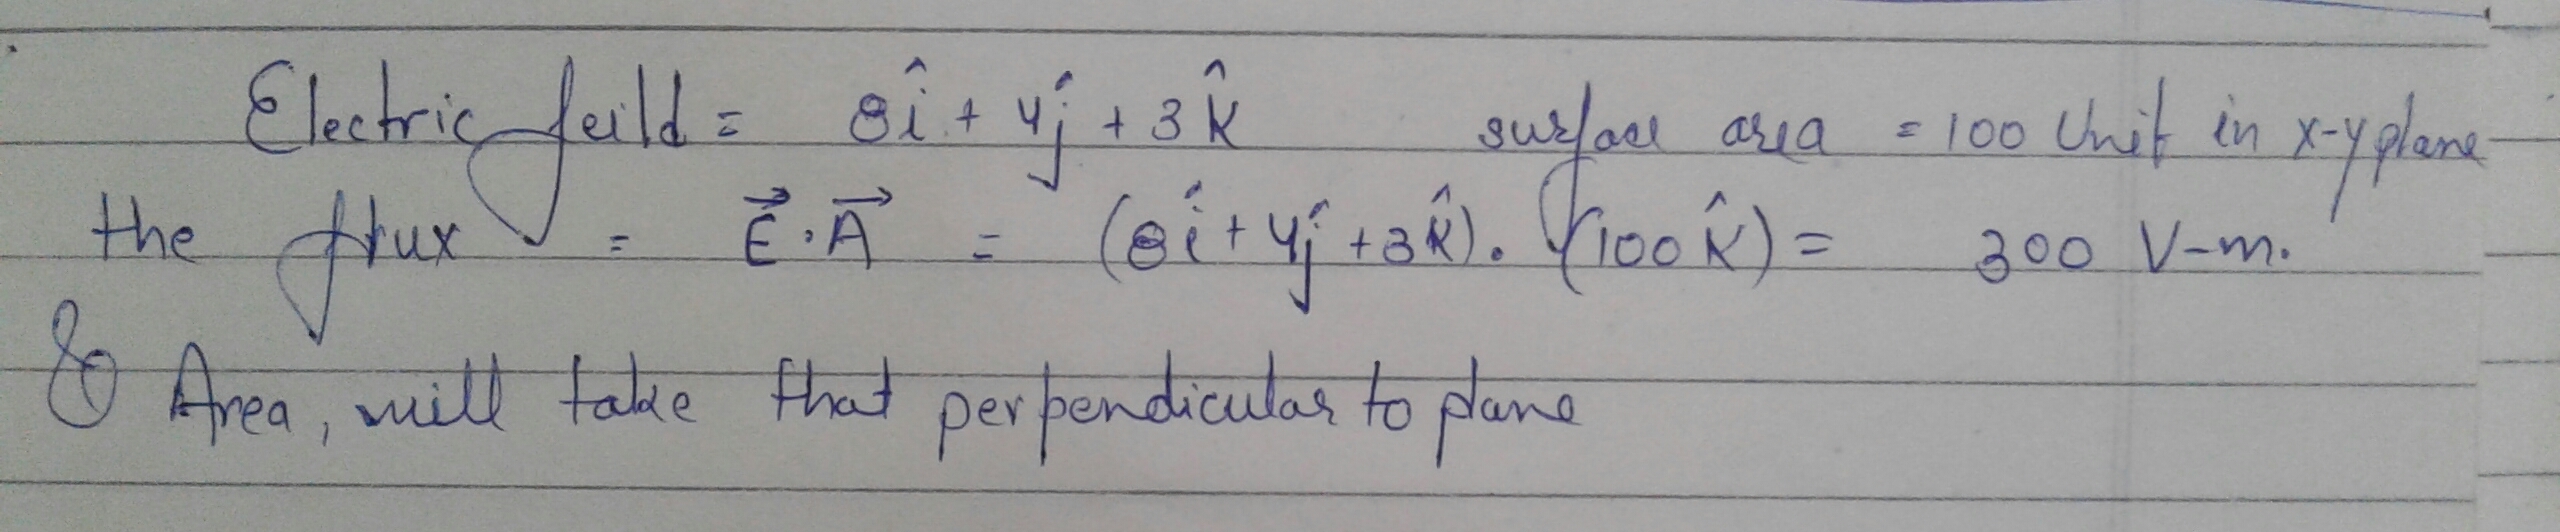 Electric feild = 8î + 4ĵ + 3k̂ surface area = 100 Unit in x-y plane
the flux = E⃗.A⃗ = (8î + 4ĵ + 3k̂). (100 k̂) = 300 V-m.
Area, will take that perpendicular to plane